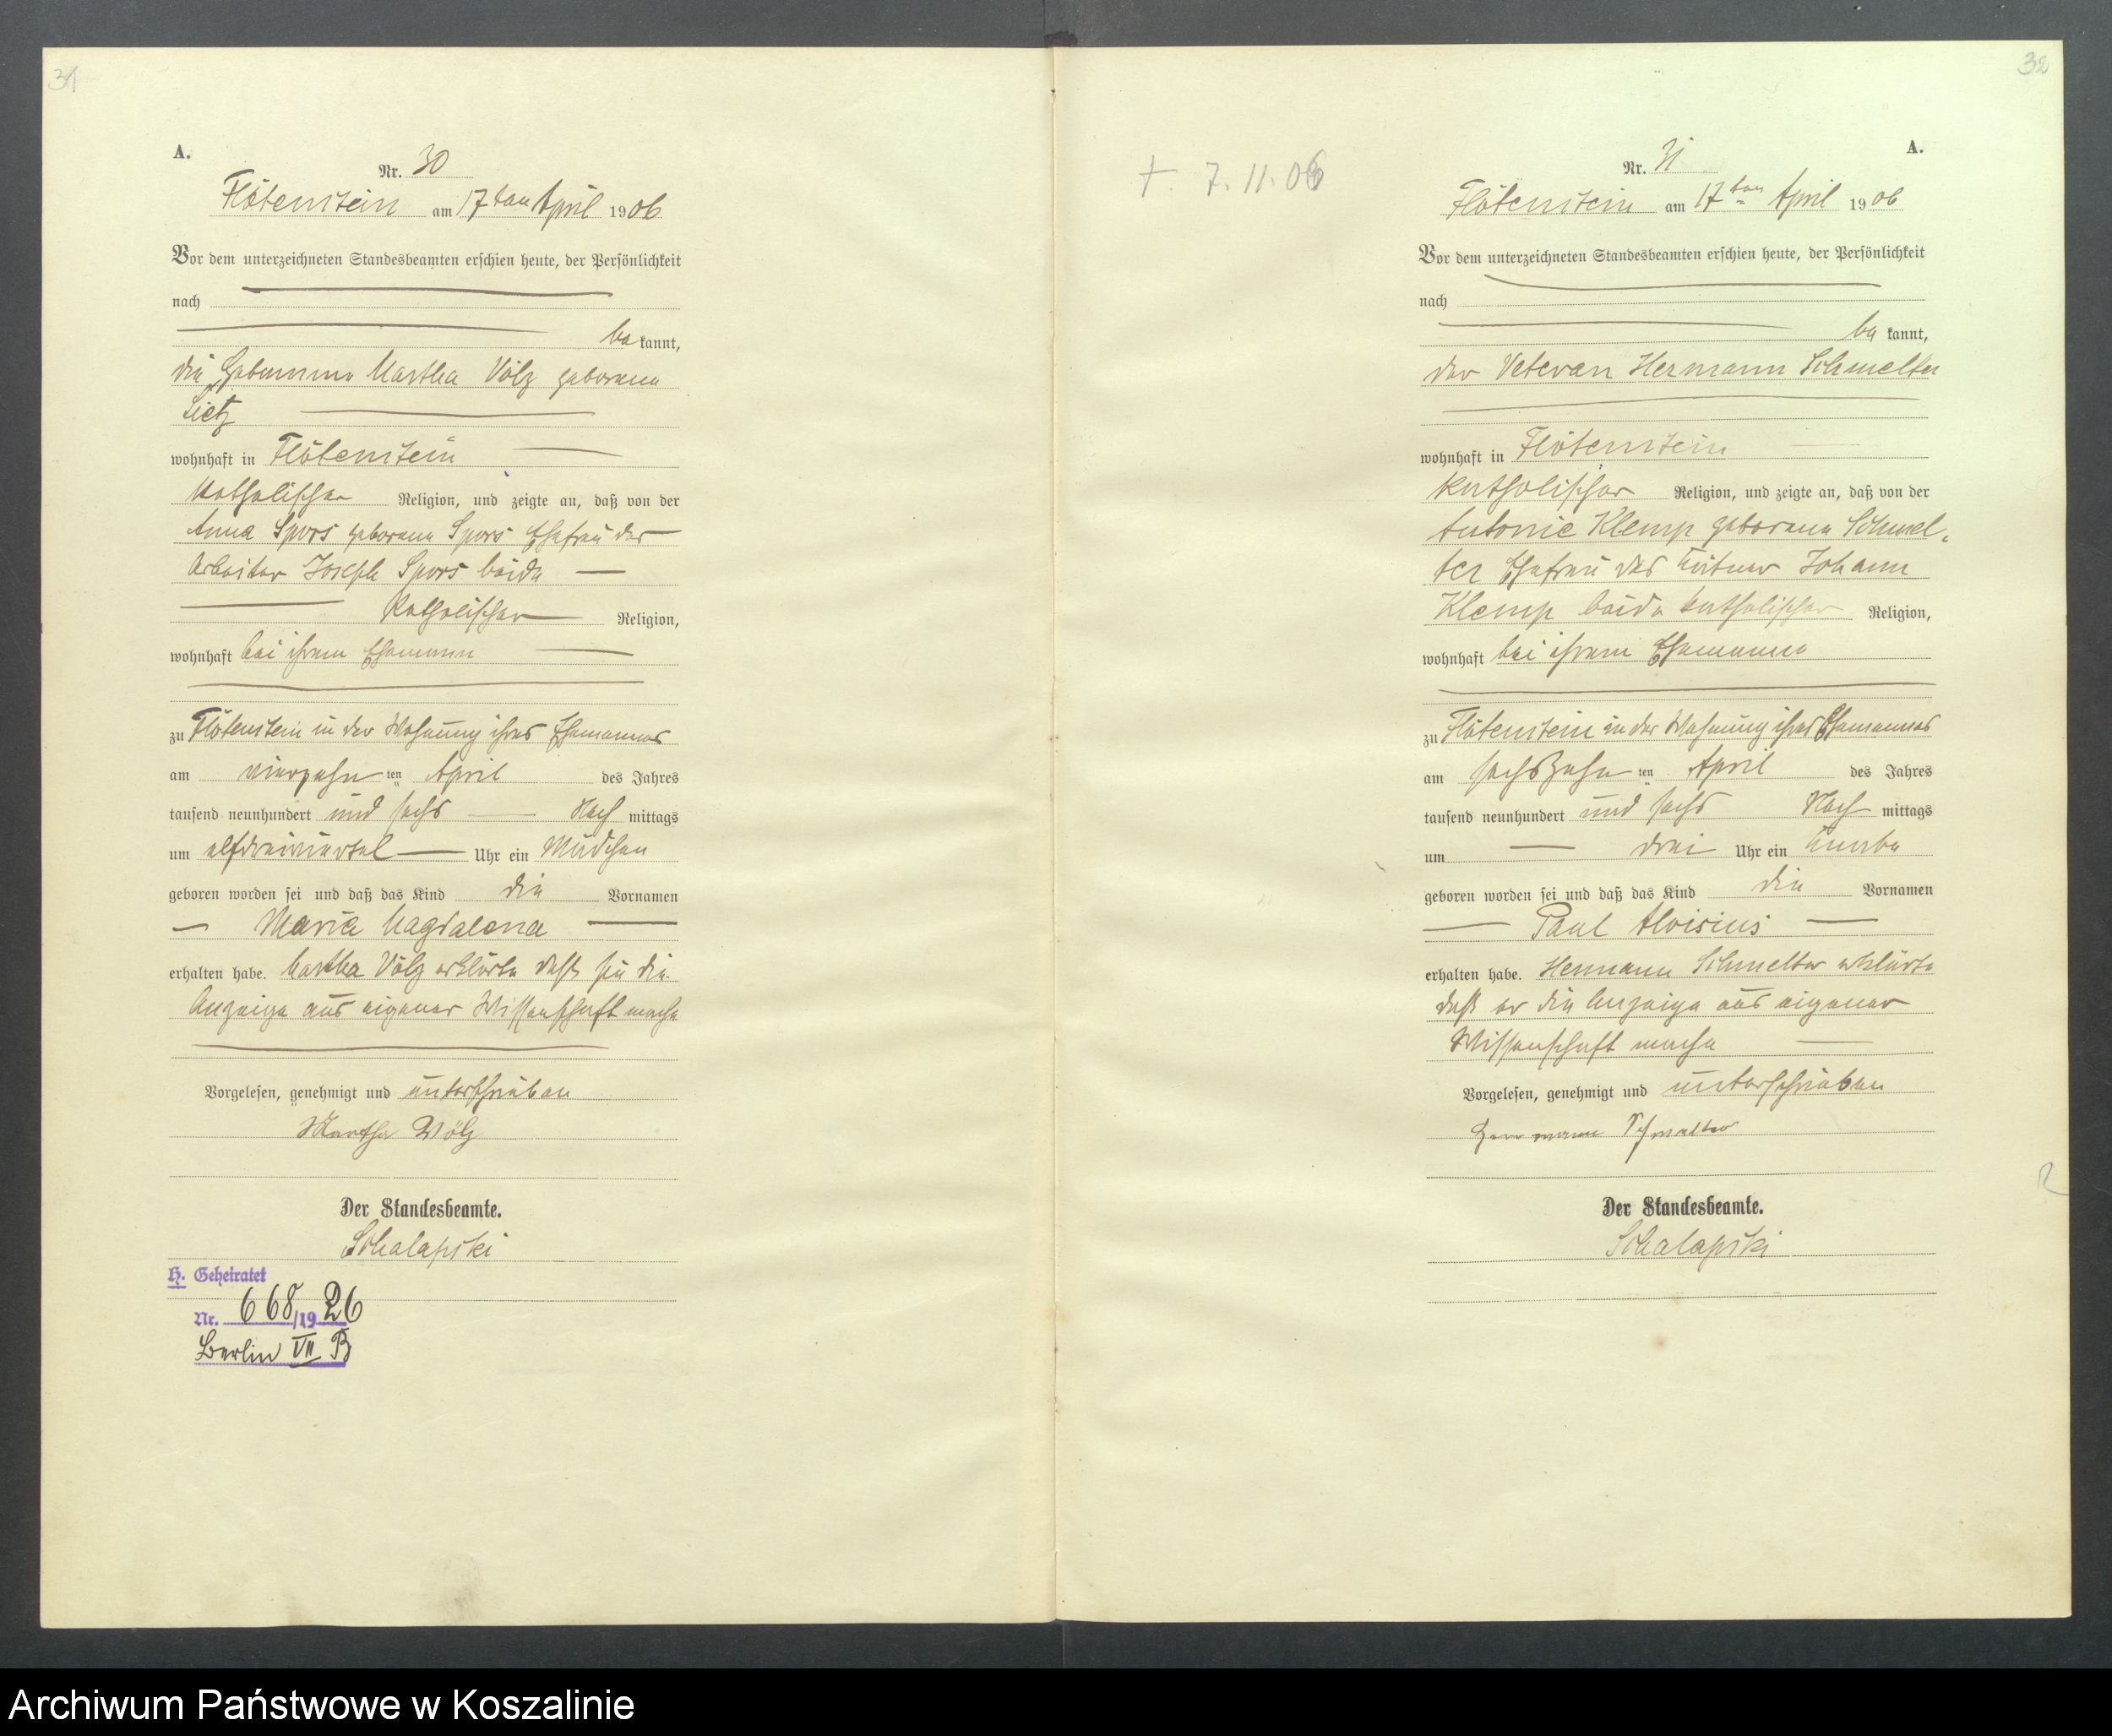 31
A.
Nr. 30
Flötenstein am 17ten April 1906
Vor dem unterzeichneten Standesbeamten erschien heute, der Persönlichkeit
nach
be kannt,
die Hebamme Martha Völz geborene
Lietz
wohnhaft in Flötenstein
katholischer Religion, und zeigte an, daß von der
Anna Spors geborene Spors Ehefrau des
Arbeiter Joseph Spors beide
katholischer Religion,
wohnhaft bei ihrem Ehemann
zu Flötenstein in der Wohnung ihres Ehemannes
am vierzehn ten April des Jahres
tausend neunhundert und sechs Nach mittags
um elfdreiviertel Uhr ein Mädchen
geboren worden sei und daß das Kind die Vornamen
Maria Magdalena
erhalten habe. Martha Völz erklärte daß sie die
Anzeige aus eigener Wissenschaft mache
Vorgelesen, genehmigt und unterschrieben
Martha Völz
Der Standesbeamte.
Schalapski
H. Geheiratet
Nr. 668/1926
Berlin VII B
32
+. 7.11.06
A.
Nr. 31
Flötenstein am 17ten April 1906
Vor dem unterzeichneten Standesbeamten erschien heute, der Persönlichkeit
nach
be kannt,
der Veteran Hermann Schmelter
wohnhaft in Flötenstein
katholischer Religion, und zeigte an, daß von der
Antonie Klemp geborene Schmel-
ter Ehefrau des Kätner Johann
Klemp beide katholischer Religion,
wohnhaft bei ihrem Ehemanne
zu Flötenstein in der Wohnung ihres Ehemannes
am sechszehn ten April des Jahres
tausend neunhundert und sechs Nach mittags
um drei Uhr ein Knabe
geboren worden sei und daß das Kind die Vornamen
Paul Aloisius
erhalten habe. Hermann Schmelter erklärte
daß er die Anzeige aus eigener
Wissenschaft mache
Vorgelesen, genehmigt und unterschrieben
Herrmann Schmelter
Der Standesbeamte.
Schalapski
R
Archiwum Państwowe w Koszalinie